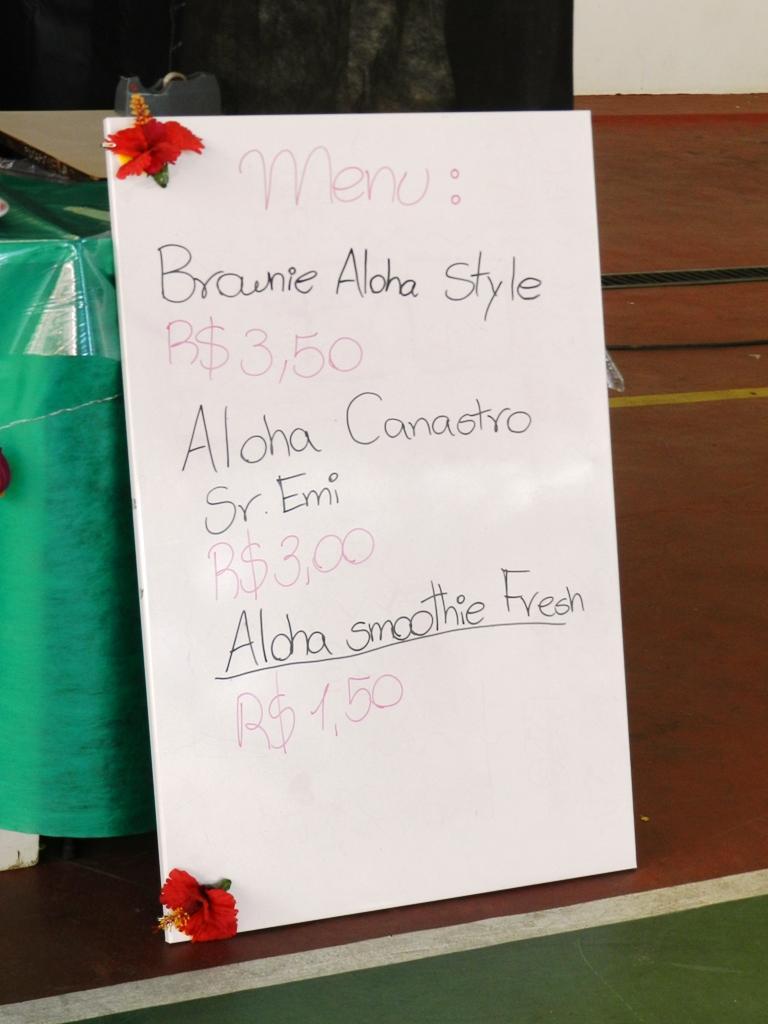 Menu:
Brownie Aloha Style
R$ 3,50
Aloha Canastro
Sr. Emi
R$ 3,00
Aloha smoothie Fresh
R$ 1,50